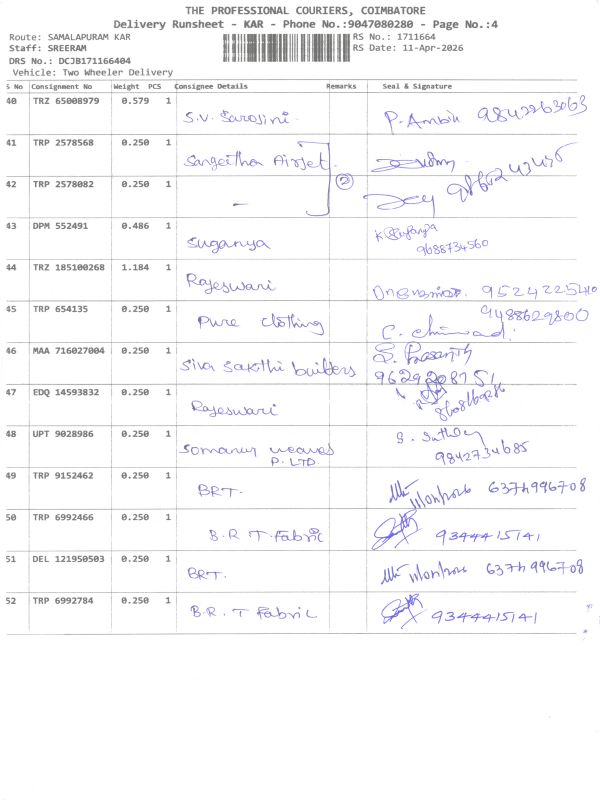 THE PROFESSIONAL COURIERS, COIMBATORE
Delivery Runsheet - KAR - Phone No.:9047080280 - Page No.:4
Route: SAMALAPURAM KAR RS No.: 1711664
Staff: SREERAM RS Date: 11-Apr-2026
DRS No.: DCJB171166404
Vehicle: Two Wheeler Delivery
S No Consignment No Weight PCS Consignee Details Remarks Seal & Signature
40 TRZ 65008979 0.579 1 S.V. Sarojini. P. Ambik 9842263063
41 TRP 2578568 0.250 1 Sangeetha Airjet
42 TRP 2578082 0.250 1 - 2
43 DPM 552491 0.486 1 Suganya
9688734560
44 TRZ 185100268 1.184 1 Rajeswari 9524225410
45 TRP 654135 0.250 1 Pure clothing 9488629800
46 MAA 716027004 0.250 1 Siva Sakthi builders S. Prasanth
9629208751
47 EDQ 14593832 0.250 1 Rajeswari
48 UPT 9028986 0.250 1 Somanur weaves
P. LTD. 9842734685
49 TRP 9152462 0.250 1 BRT. 6374996708
50 TRP 6992466 0.250 1 B.R T. Fabric 9344415141
51 DEL 121950503 0.250 1 BRT. 6374996708
52 TRP 6992784 0.250 1 B.R. T Fabric 9344415141